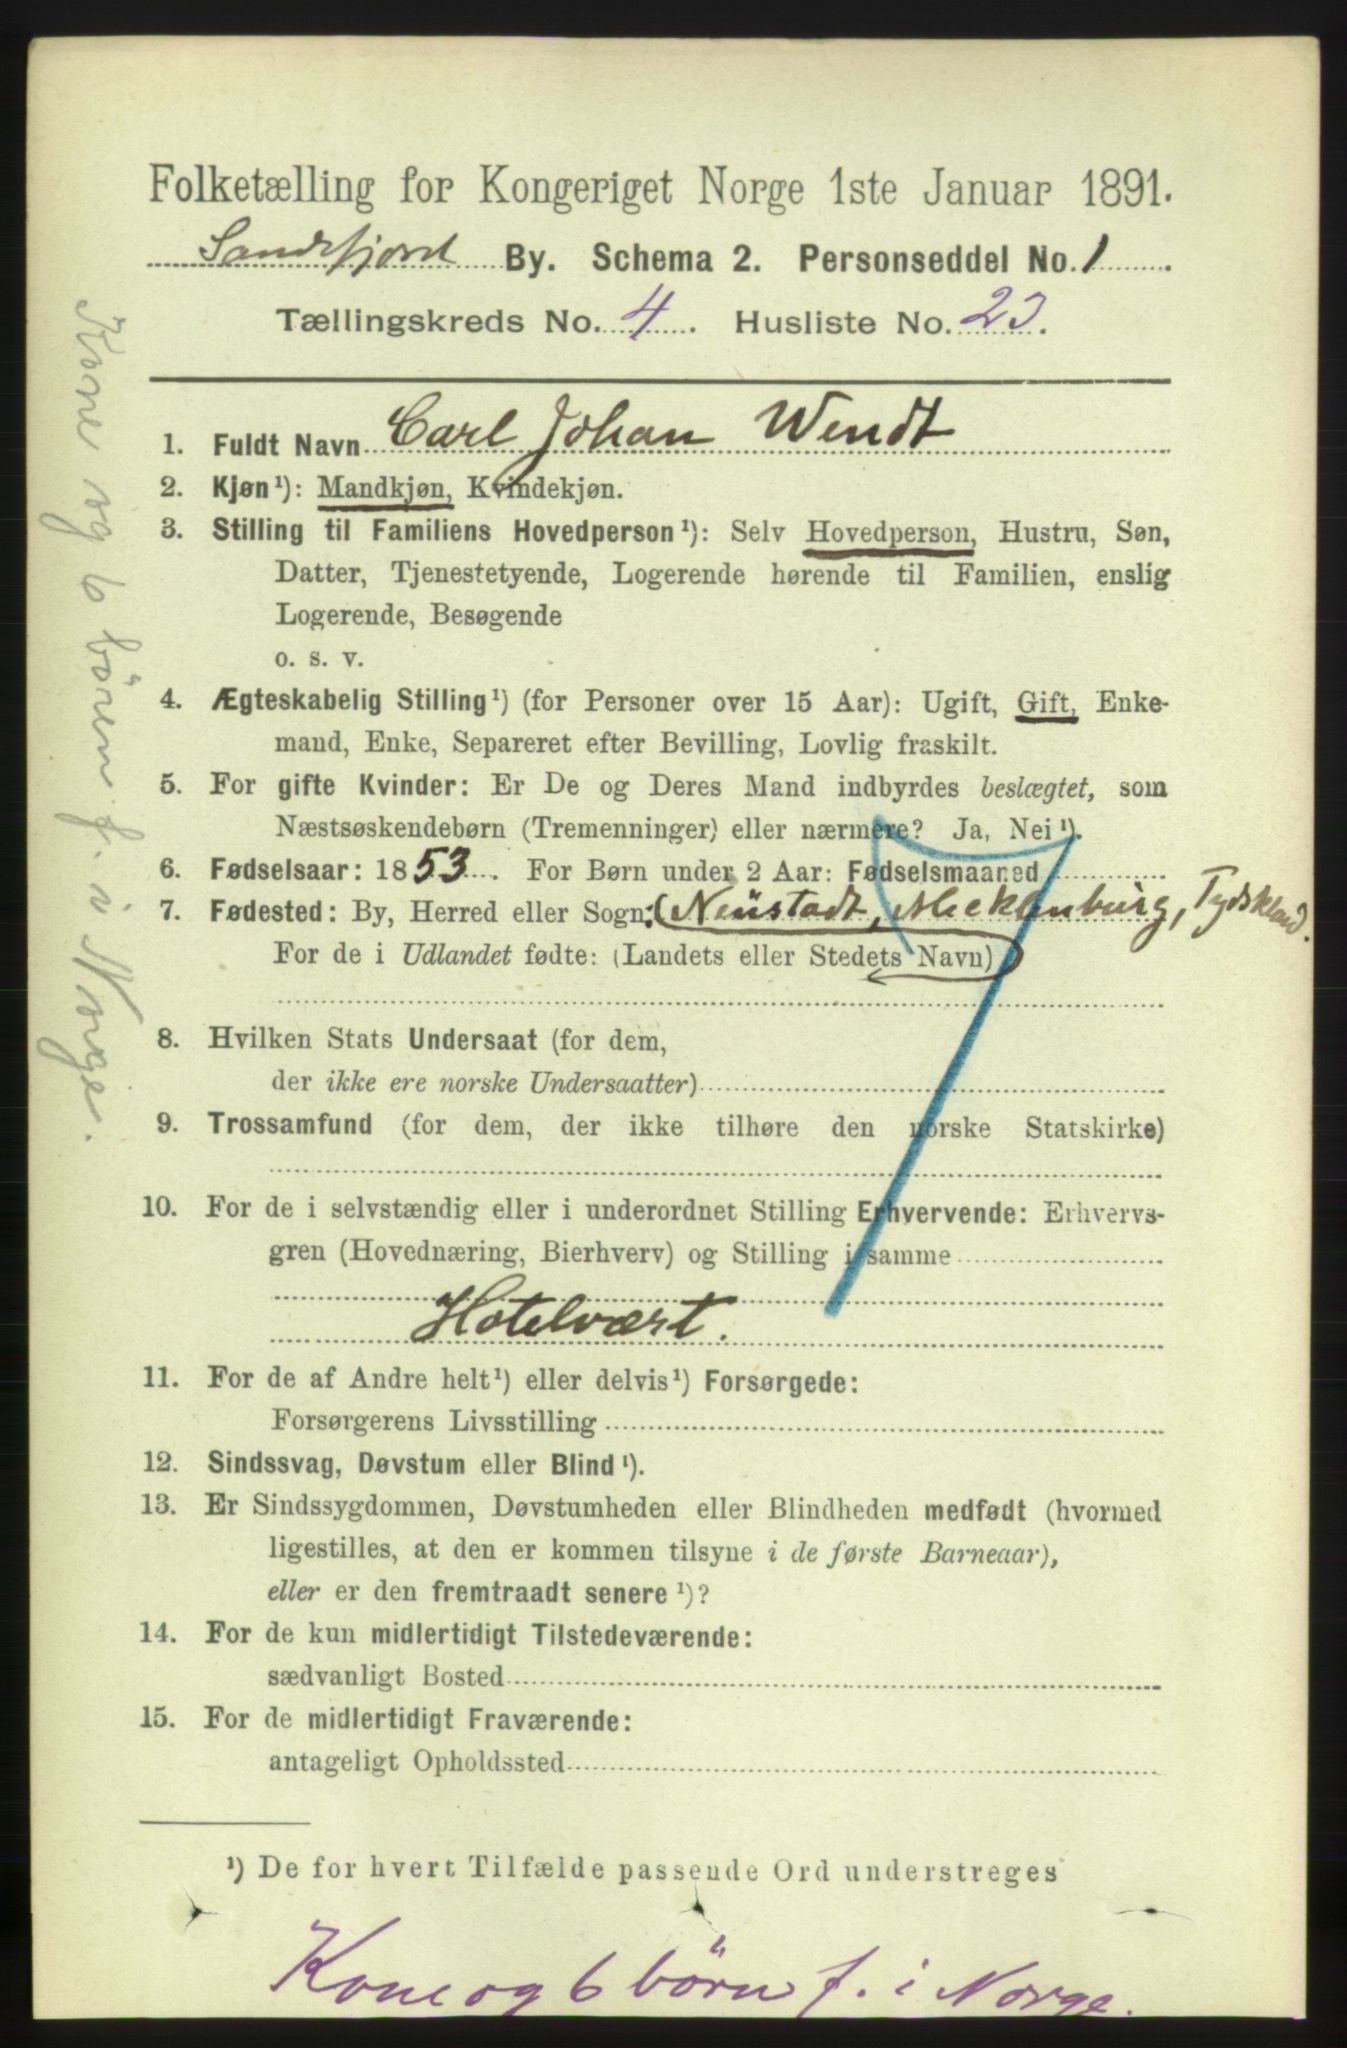 Folketælling for Kongeriget Norge 1ste Januar 1891.
Sandefjord By. Schema 2. Personseddel No. 1
Tællingskreds No. 4. Husliste No. 23.
1. Fuldt Navn Carl Johan Wendt
2. Kjøn¹): Mandkjøn, Kvindekjøn.
3. Stilling til Familiens Hovedperson¹): Selv Hovedperson, Hustru, Søn,
Datter, Tjenestetyende, Logerende hørende til Familien, enslig
Logerende, Besøgende
o. s. v.
4. Ægteskabelig Stilling¹) (for Personer over 15 Aar): Ugift, Gift, Enke-
mand, Enke, Separeret efter Bevilling, Lovlig fraskilt.
5. For gifte Kvinder: Er De og Deres Mand indbyrdes beslægtet, som
Næstsøskendebørn (Tremenninger) eller nærmere? Ja, Nei¹).
6. Fødselsaar: 1853. For Børn under 2 Aar: Fødselsmaaned
7. Fødested: By, Herred eller Sogn: (Neüstadt, Mecklenbürg, Tydskland.
For de i Udlandet fødte: (Landets eller Stedets Navn)
8. Hvilken Stats Undersaat (for dem,
der ikke ere norske Undersaatter)
9. Trossamfund (for dem, der ikke tilhøre den norske Statskirke)
10. For de i selvstændig eller i underordnet Stilling Erhvervende: Erhvervs-
gren (Hovednæring, Bierhverv) og Stilling i samme
Hotelvært.
11. For de af Andre helt¹) eller delvis¹) Forsørgede:
Forsørgerens Livsstilling
12. Sindssvag, Døvstum eller Blind¹).
13. Er Sindssygdommen, Døvstumheden eller Blindheden medfødt (hvormed
ligestilles, at den er kommen tilsyne i de første Barneaar),
eller er den fremtraadt senere¹)?
14. For de kun midlertidigt Tilstedeværende:
sædvanligt Bosted
15. For de midlertidigt Fraværende:
antageligt Opholdssted
¹) De for hvert Tilfælde passende Ord understreges
Kone og 6 börn f. i Norge.
Kone og 6 börn f. i Norge.
7